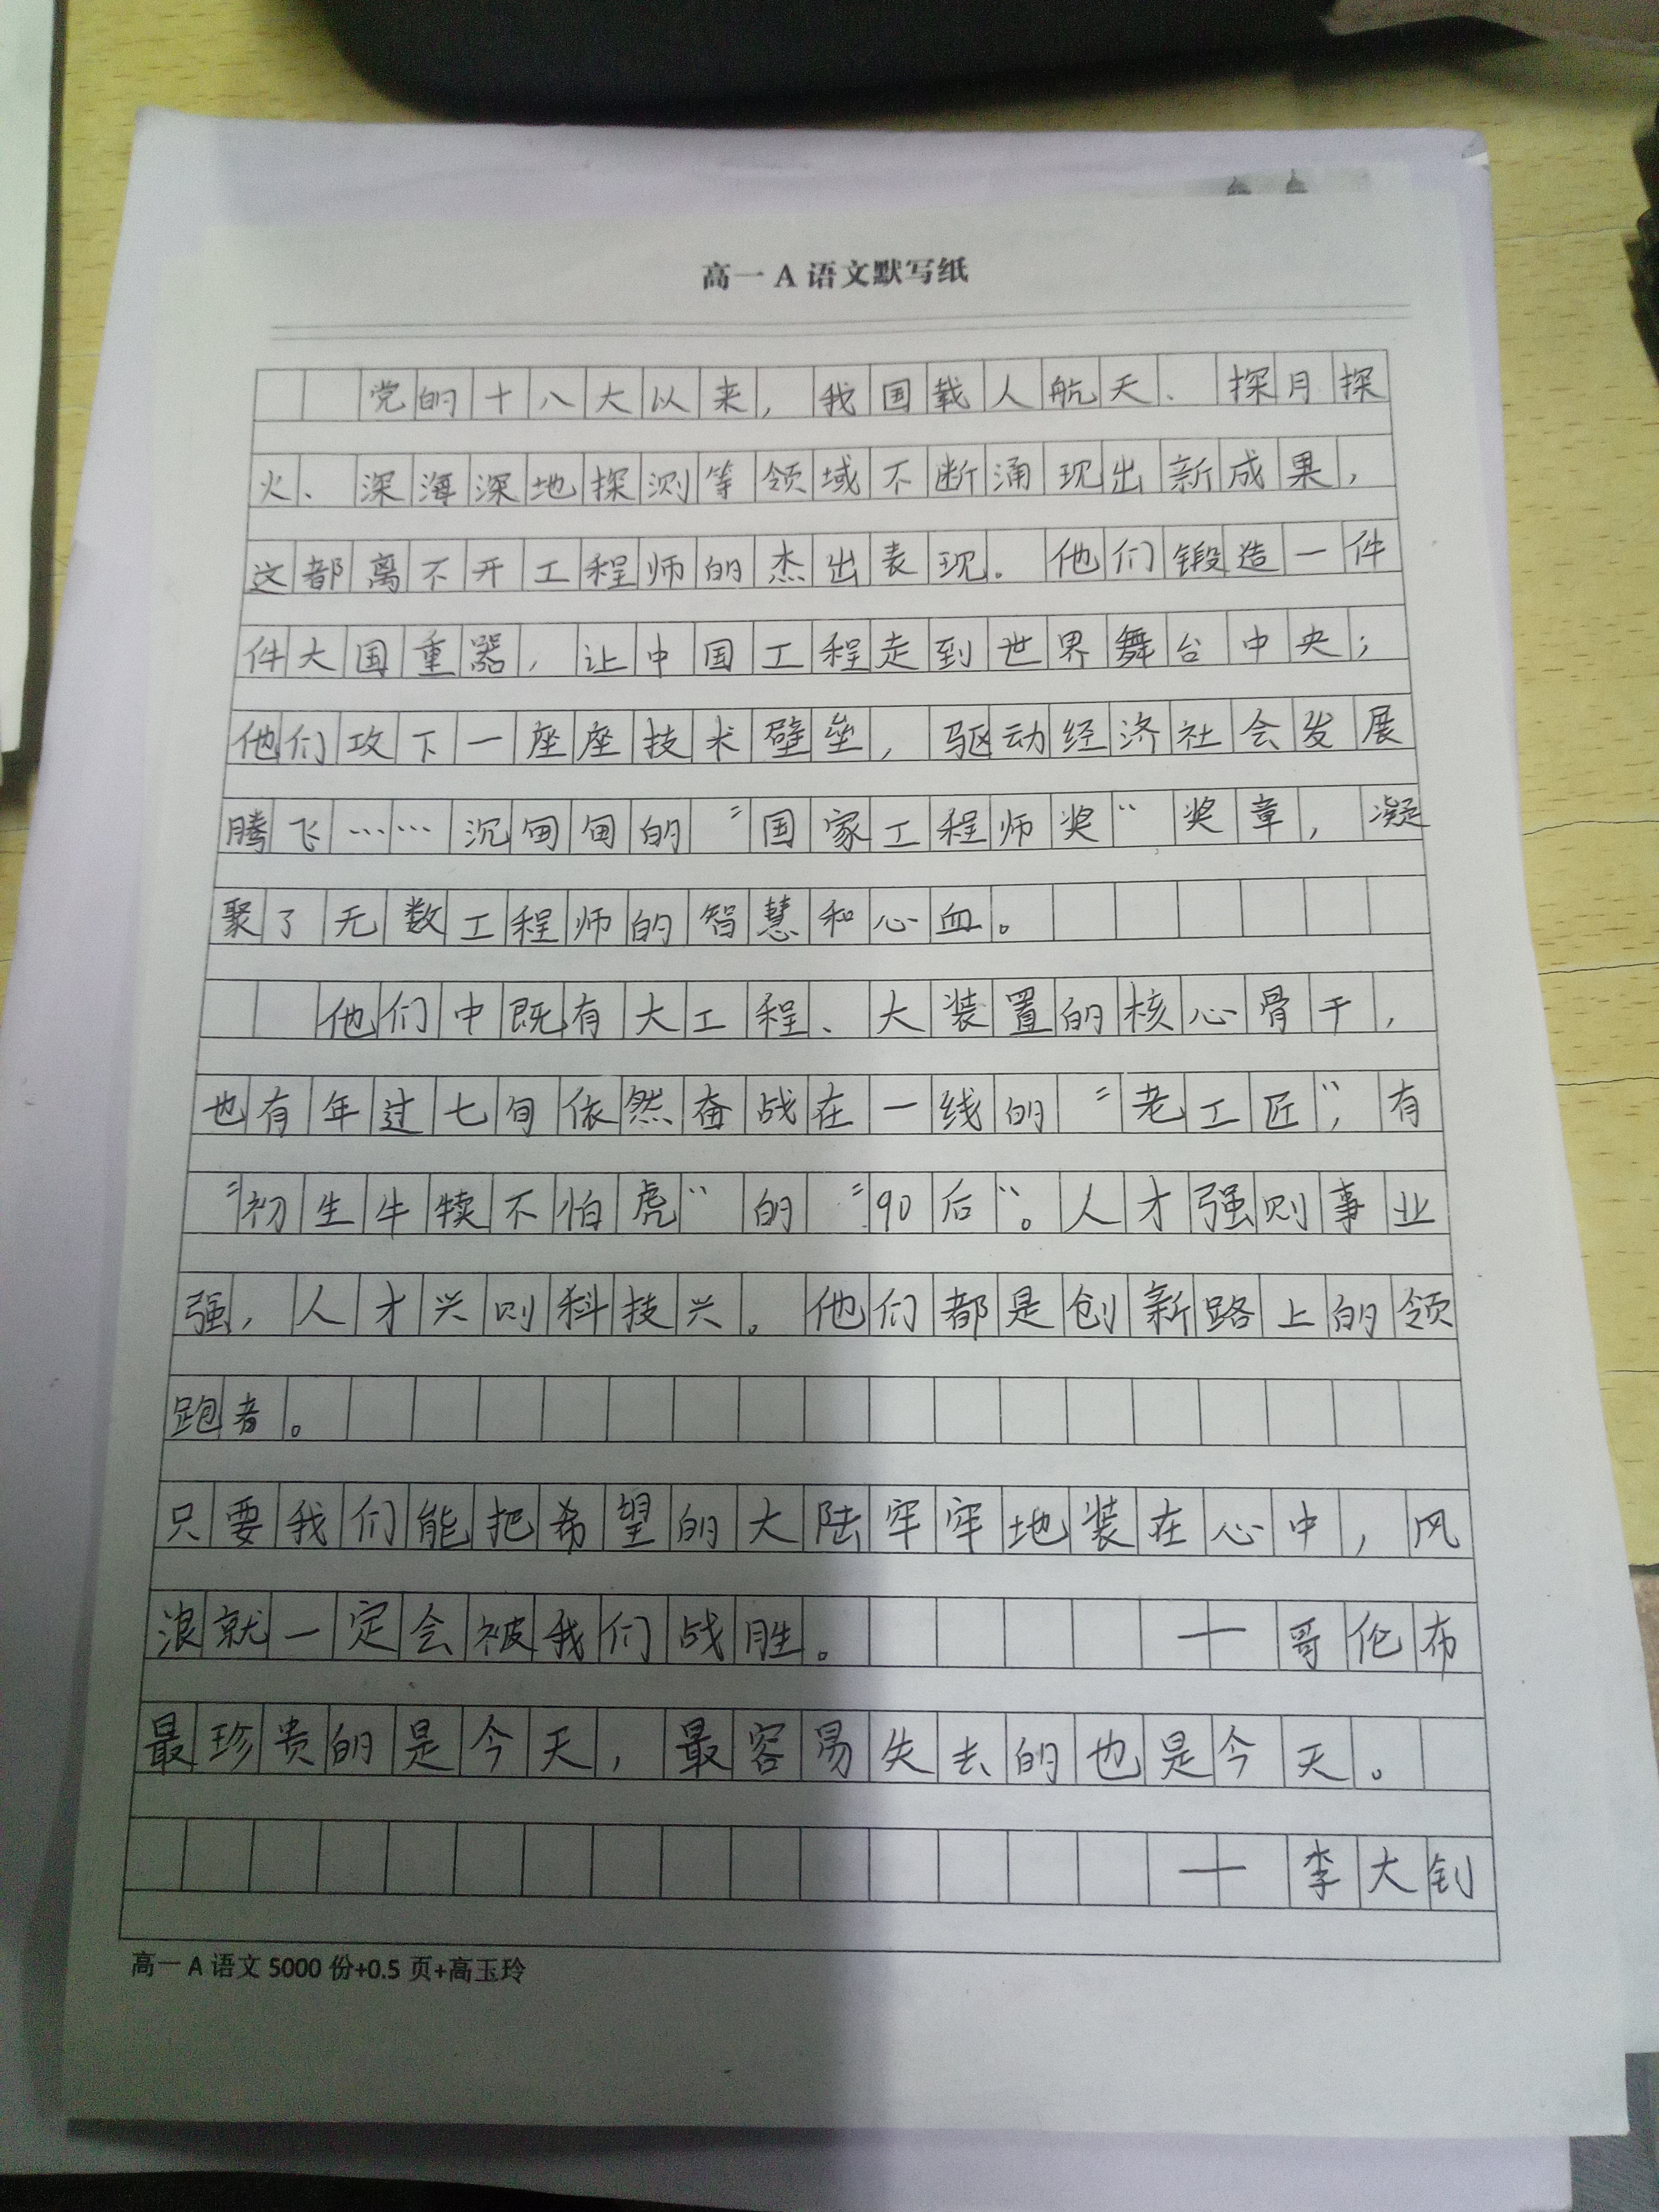 高一 A 语文默写纸
党的十八大以来，我国载人航天、探月探
火、深海深地探测等领域不断涌现出新成果，
这都离不开工程师的杰出表现。他们锻造一件
件大国重器，让中国工程走到世界舞台中央；
他们攻下一座座技术壁垒，驱动经济社会发展
腾飞……沉甸甸的“国家工程师奖”奖章，凝
聚了无数工程师的智慧和心血。
他们中既有大工程、大装置的核心骨干，
也有年过七旬依然奋战在一线的“老工匠”，有
“初生牛犊不怕虎”的“90后”。人才强则事业
强，人才兴则科技兴。他们都是创新路上的领
跑者。
只要我们能把希望的大陆牢牢地装在心中，风
浪就一定会被我们战胜。 —— 哥伦布
最珍贵的是今天，最容易失去的也是今天。
—— 李大钊
高一 A 语文 5000 份+0.5 页+高玉玲